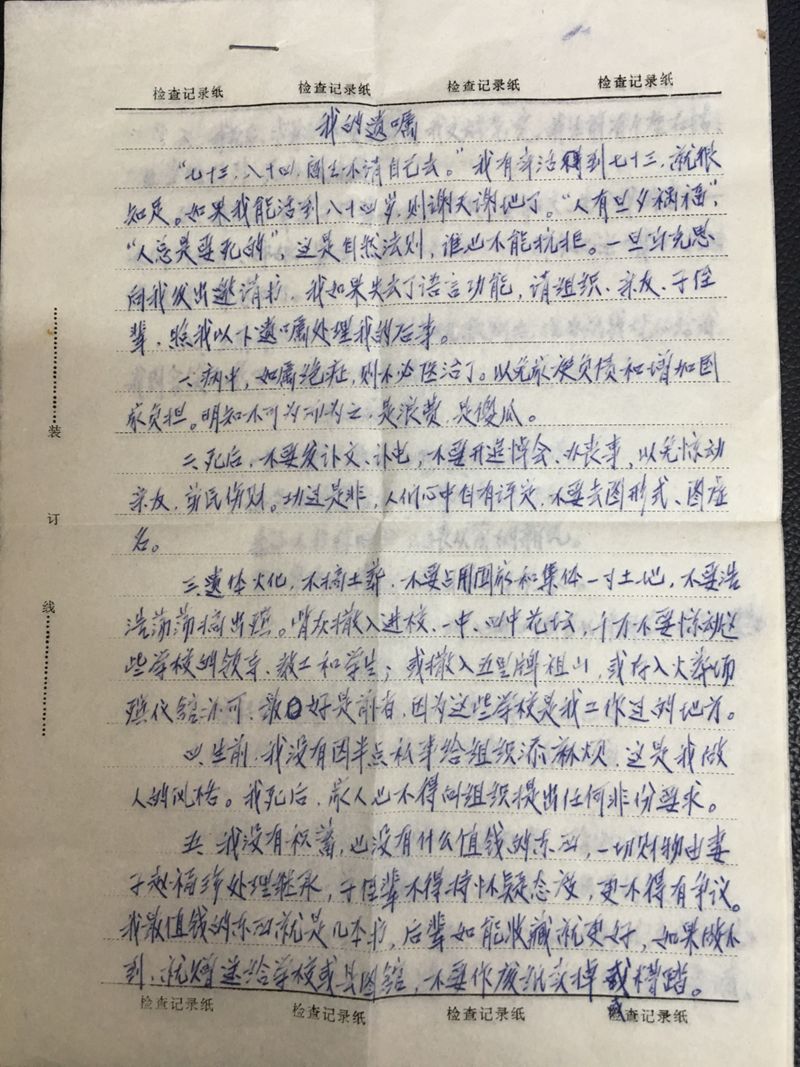 检查记录纸 检查记录纸 检查记录纸 检查记录纸
我的遗嘱
“七十三,八十四,阎王不请自己去。”我有幸活到七十三,就很
知足。如果我能活到八十四岁,则谢天谢地了。“人有旦夕祸福”,
“人总是要死的”,这是自然法则,谁也不能抗拒。一旦马克思
向我发出邀请书,我如果失去了语言功能,请组织、亲友、子侄
辈,照我以下遗嘱处理我的后事。
一、病中,如属绝症,则不必医治了。以免家庭负债和增加国
家负担。明知不可为而为之,是浪费,是傻瓜。
二、死后,不要发讣文、讣电,不要开追悼会、办丧事,以免惊动
亲友,劳民伤财。功过是非,人们心中自有评定,不要去图形式、图虚
名。
三、遗体火化,不搞土葬,不要占用国家和集体一寸土地,不要浩
浩荡荡搞出殡。骨灰撒入进校、一中、四中花坛,千万不要惊动这
些学校的领导、教工和学生;或撒入五里牌祖山,或存入火葬场
殡仪馆亦可,最好是前者,因为这些学校是我工作过的地方。
四、生前,我没有因半点私事给组织添麻烦,这是我做
人的风格。我死后,家人也不得向组织提出任何非份要求。
五、我没有积蓄,也没有什么值钱的东西,一切财物由妻
子赵福珍处理继承,子侄辈不得持怀疑态度,更不得有争议。
我最值钱的东西就是几本书,后辈如能收藏就更好,如果做不
到,就赠送给学校或县图馆,不要作废纸卖掉或糟蹋。
检查记录纸 检查记录纸 检查记录纸 检查记录纸
装
订
线